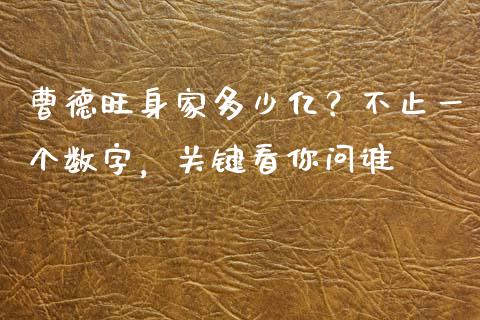 曹德旺身家多少亿？不止一
个数字，关键看你问谁